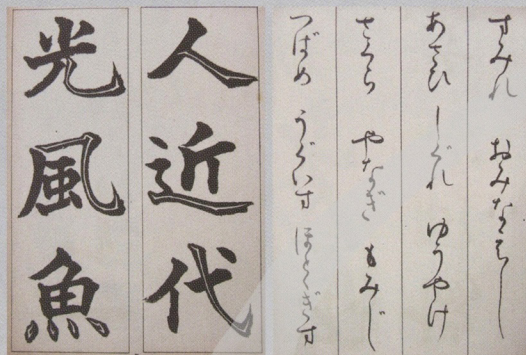 すみれ おみなえし
あさひ しぐれ ゆうやけ
さくら やなぎ もみじ
つばめ うぐいす ほととぎす
人近代
光風魚